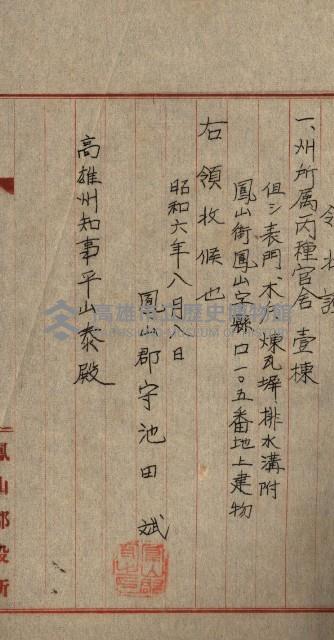 領收證
一、州所屬丙種官舍 壹棟
但シ表門木戸煉瓦塀排水溝附
鳳山街鳳山字縣口一〇五番地上建物
右領收候也
昭和六年八月 日
鳳山郡守池田斌
高雄州知事平山泰殿
鳳山郡役所
高雄市立歷史博物館